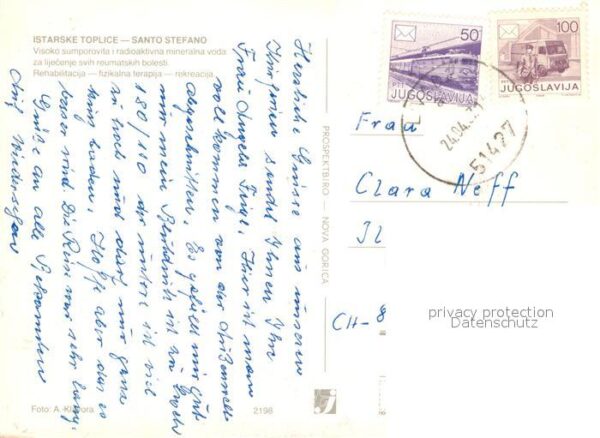 ISTARSKE TOPLICE — SANTO STEFANO
Visoko sumporovita i radioaktivna mineralna voda
za liječenje svih reumatskih bolesti.
Rehabilitacija — fizikalna terapija — rekreacija
Herzliche Grüsse aus unserem
sendet Ihnen Ihre
Frau Angela Hier ist man
vollkommen von der Außenwelt
abgeschnitten. Es gefällt mir gut
nur mein Blutdruck ist zu hoch
180/110 der untere ist viel
zu hoch und darf nur ganz
baden. Hoffe aber das es
besser wird. Die Reise war sehr lang.
Grüße an alle Bekannten
Auf Wiedersehen
Foto: A.
2198
PROSPEKTBIRO — NOVA GORICA
50
PTT
JUGOSLAVIJA
100
JUGOSLAVIJA
24.04.
51427
Frau
Clara Neff
Il
CH-8
privacy protection
Datenschutz